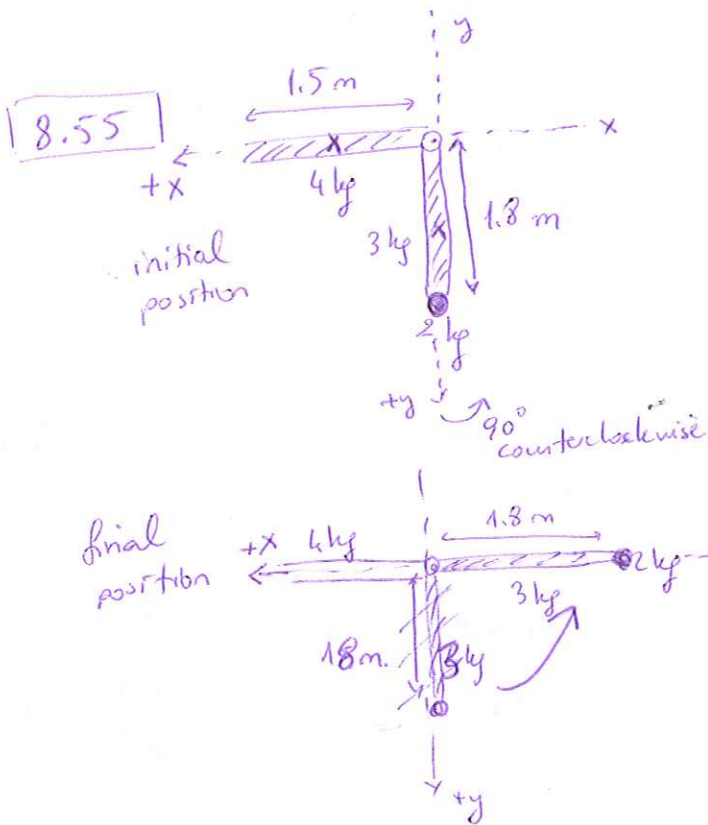 y
1.5 m
8.55
x
+x
4 kg
1.8 m
3 kg
initial
position
2 kg
+y
90°
counterclockwise
final
position
+x
4 kg
1.8 m
2 kg
3 kg
18 m.
3 kg
+y